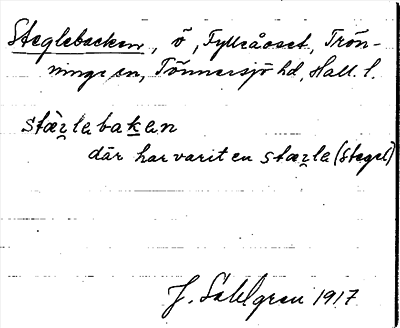 Steglebacken, ö, Fylleåoset, Trön-
ninge sn, Tönnersjö hd, Hall. l.
stæ̀rlabakan
där har varit en stærla (stegel)
J. Sahlgren 1917